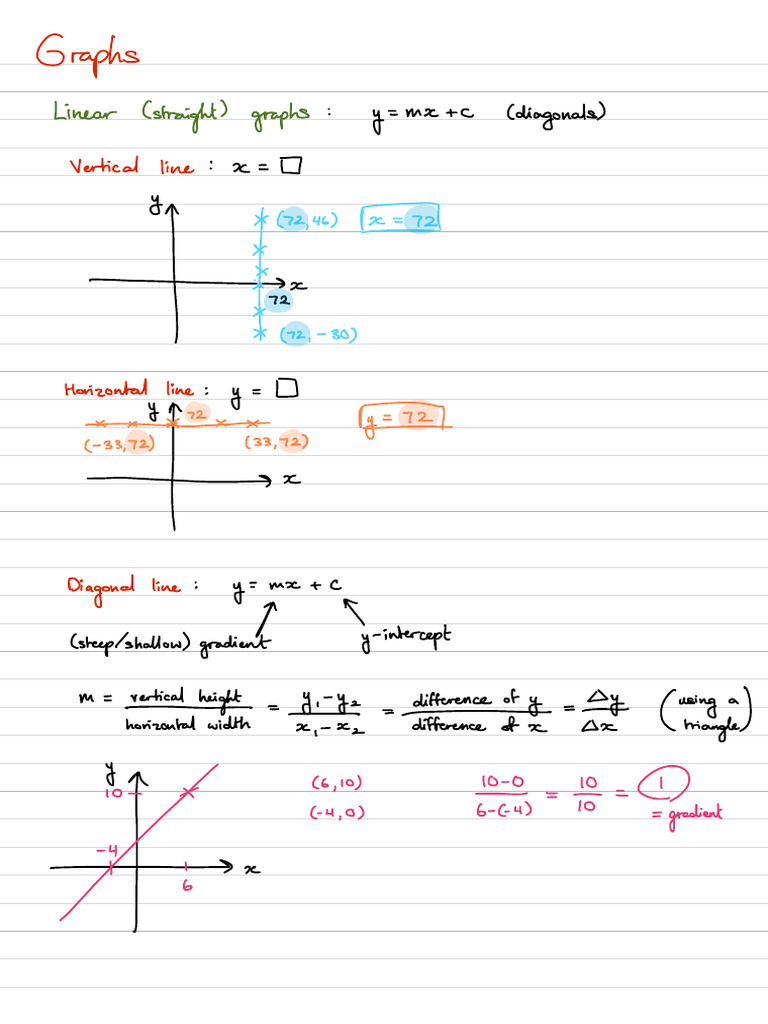 Graphs
Linear (straight) graphs : y = mx + c (diagonals)
Vertical line : x = □
y
(72, 46) x = 72
x
72
(72, -30)
Horizontal line : y = □
y 72 y = 72
(-33, 72) (33, 72)
x
Diagonal line : y = mx + c
(steep/shallow) gradient y-intercept
m = vertical height / horizontal width = y₁ - y₂ / x₁ - x₂ = difference of y / difference of x = Δy / Δx (using a triangle)
y
10 (6, 10) 10-0 / 6-(-4) = 10 / 10 = 1
(-4, 0) = gradient
-4
x
6